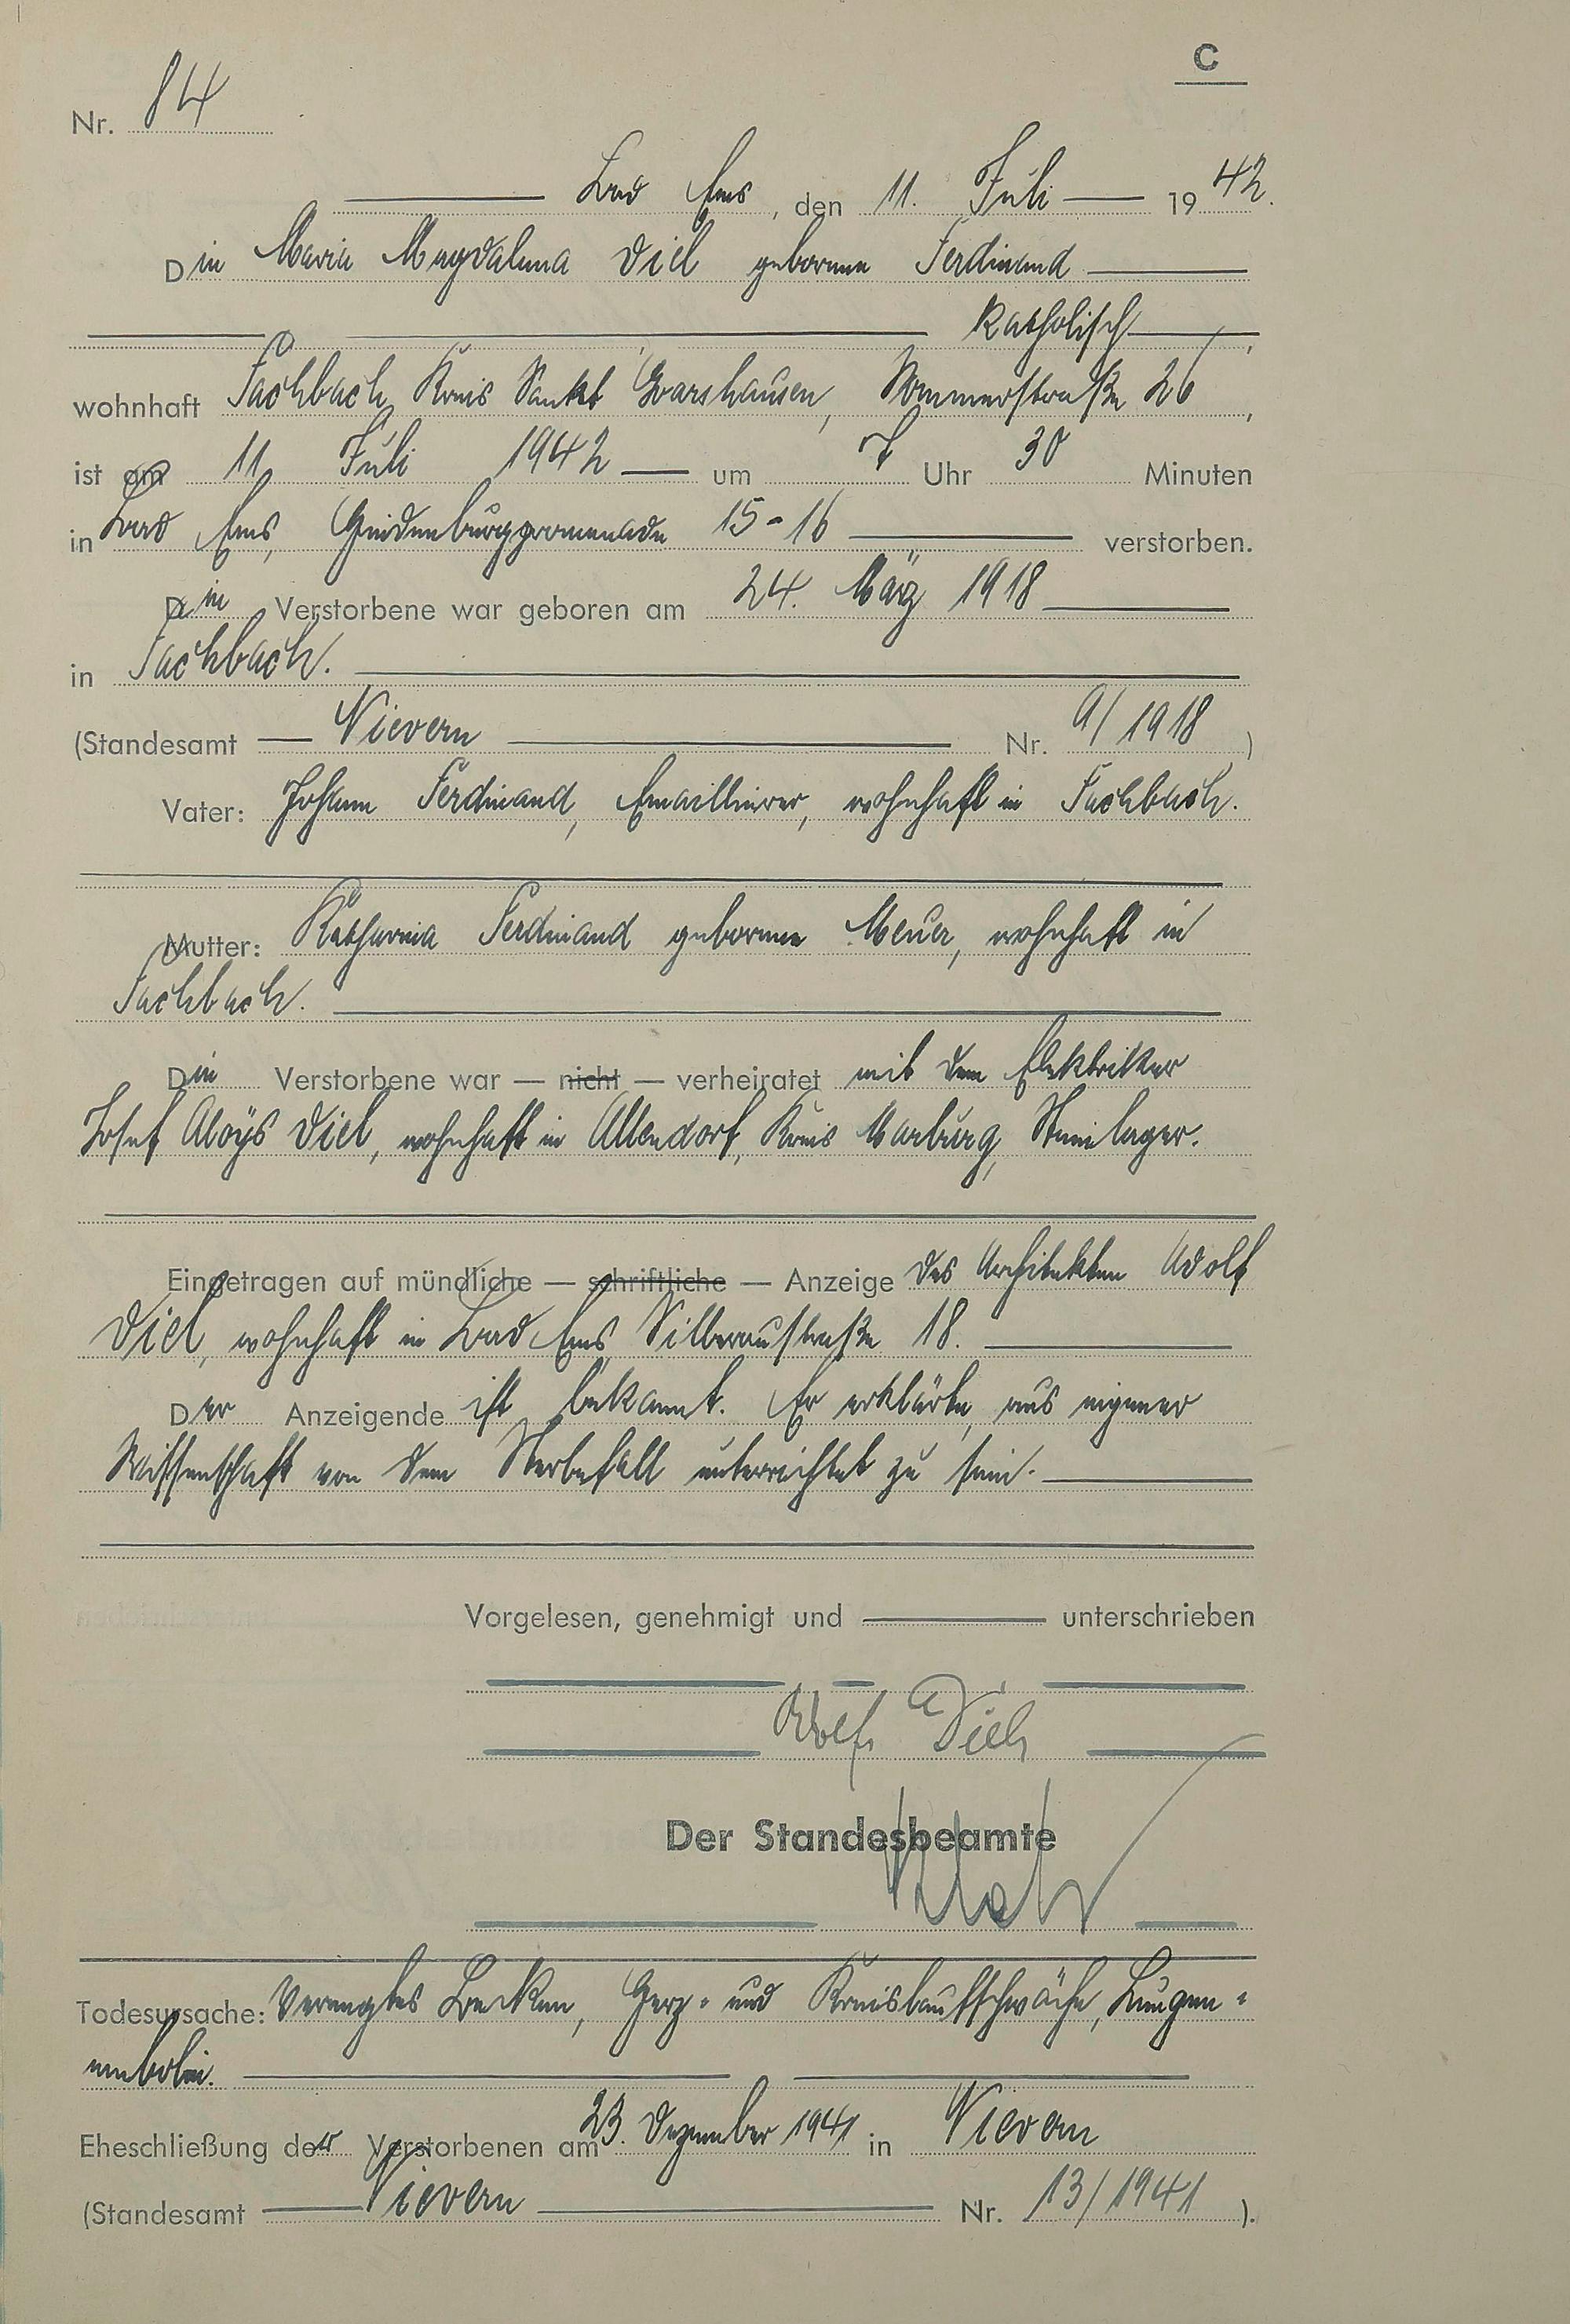 C
Nr. 84
Bad Ems, den 11. Juli 1942.
Die Maria Magdalena Diel geborene Ferdinand
katholisch,
wohnhaft Fachbach, Kreis Sankt Goarshausen, Sommerstraße 26,
ist am 11. Juli 1942 um 7 Uhr 30 Minuten
in Bad Ems, Hindenburgpromenade 15-16 verstorben.
Die Verstorbene war geboren am 24. März 1918
in Fachbach.
(Standesamt Nievern Nr. 9/1918)
Vater: Johann Ferdinand, Emaillierer, wohnhaft in Fachbach.
Mutter: Katharina Ferdinand geborene Meuer, wohnhaft in
Fachbach.
Die Verstorbene war — nicht — verheiratet mit dem Elektriker
Josef Aloÿs Diel, wohnhaft in Allendorf, Kreis Marburg, Steinlager.
Eingetragen auf mündliche — schriftliche — Anzeige des Architekten Adolf
Diel, wohnhaft in Bad Ems, Silberaustraße 18.
Der Anzeigende ist bekannt. Er erklärte, aus eigener
Wissenschaft von dem Sterbefall unterrichtet zu sein.
Vorgelesen, genehmigt und unterschrieben
Adolf Diel
Der Standesbeamte
Todesursache: Verengtes Becken, Herz- und Kreislaufschwäche, Lungen-
embolie.
Eheschließung der Verstorbenen am 23. Dezember 1941 in Nievern
(Standesamt Nievern Nr. 13/1941).